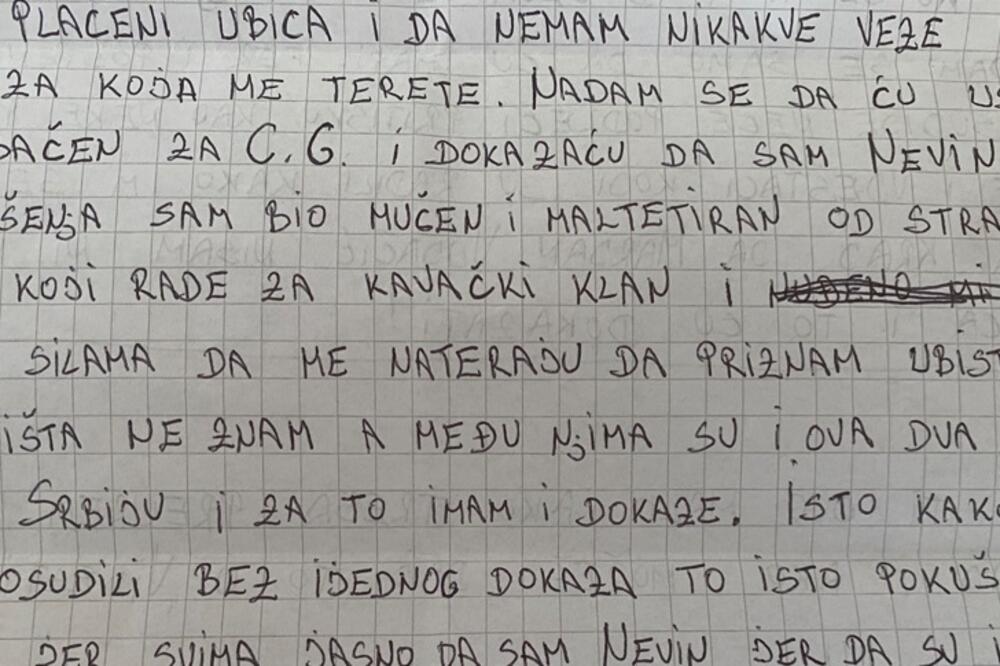 PLAĆENI UBICA I DA NEMAM NIKAKVE VEZE
ZA KOJA ME TERETE. NADAM SE DA ĆU
AČEN ZA C.G. I DOKAZAĆU DA SAM NEVIN
ŠENJA SAM BIO MUČEN I MALTETIRAN OD STRA
KOJI RADE ZA KAVAČKI KLAN I
SILAMA DA ME NATERAJU DA PRIZNAM UBIST
IŠTA NE ZNAM A MEĐU NJIMA SU I OVA DVA
SRBIJU I ZA TO IMAM I DOKAZE. ISTO KAK
OSUDILI BEZ IJEDNOG DOKAZA TO ISTO POKUŠ
JER SVIMA JASNO DA SAM NEVIN JER DA SU I